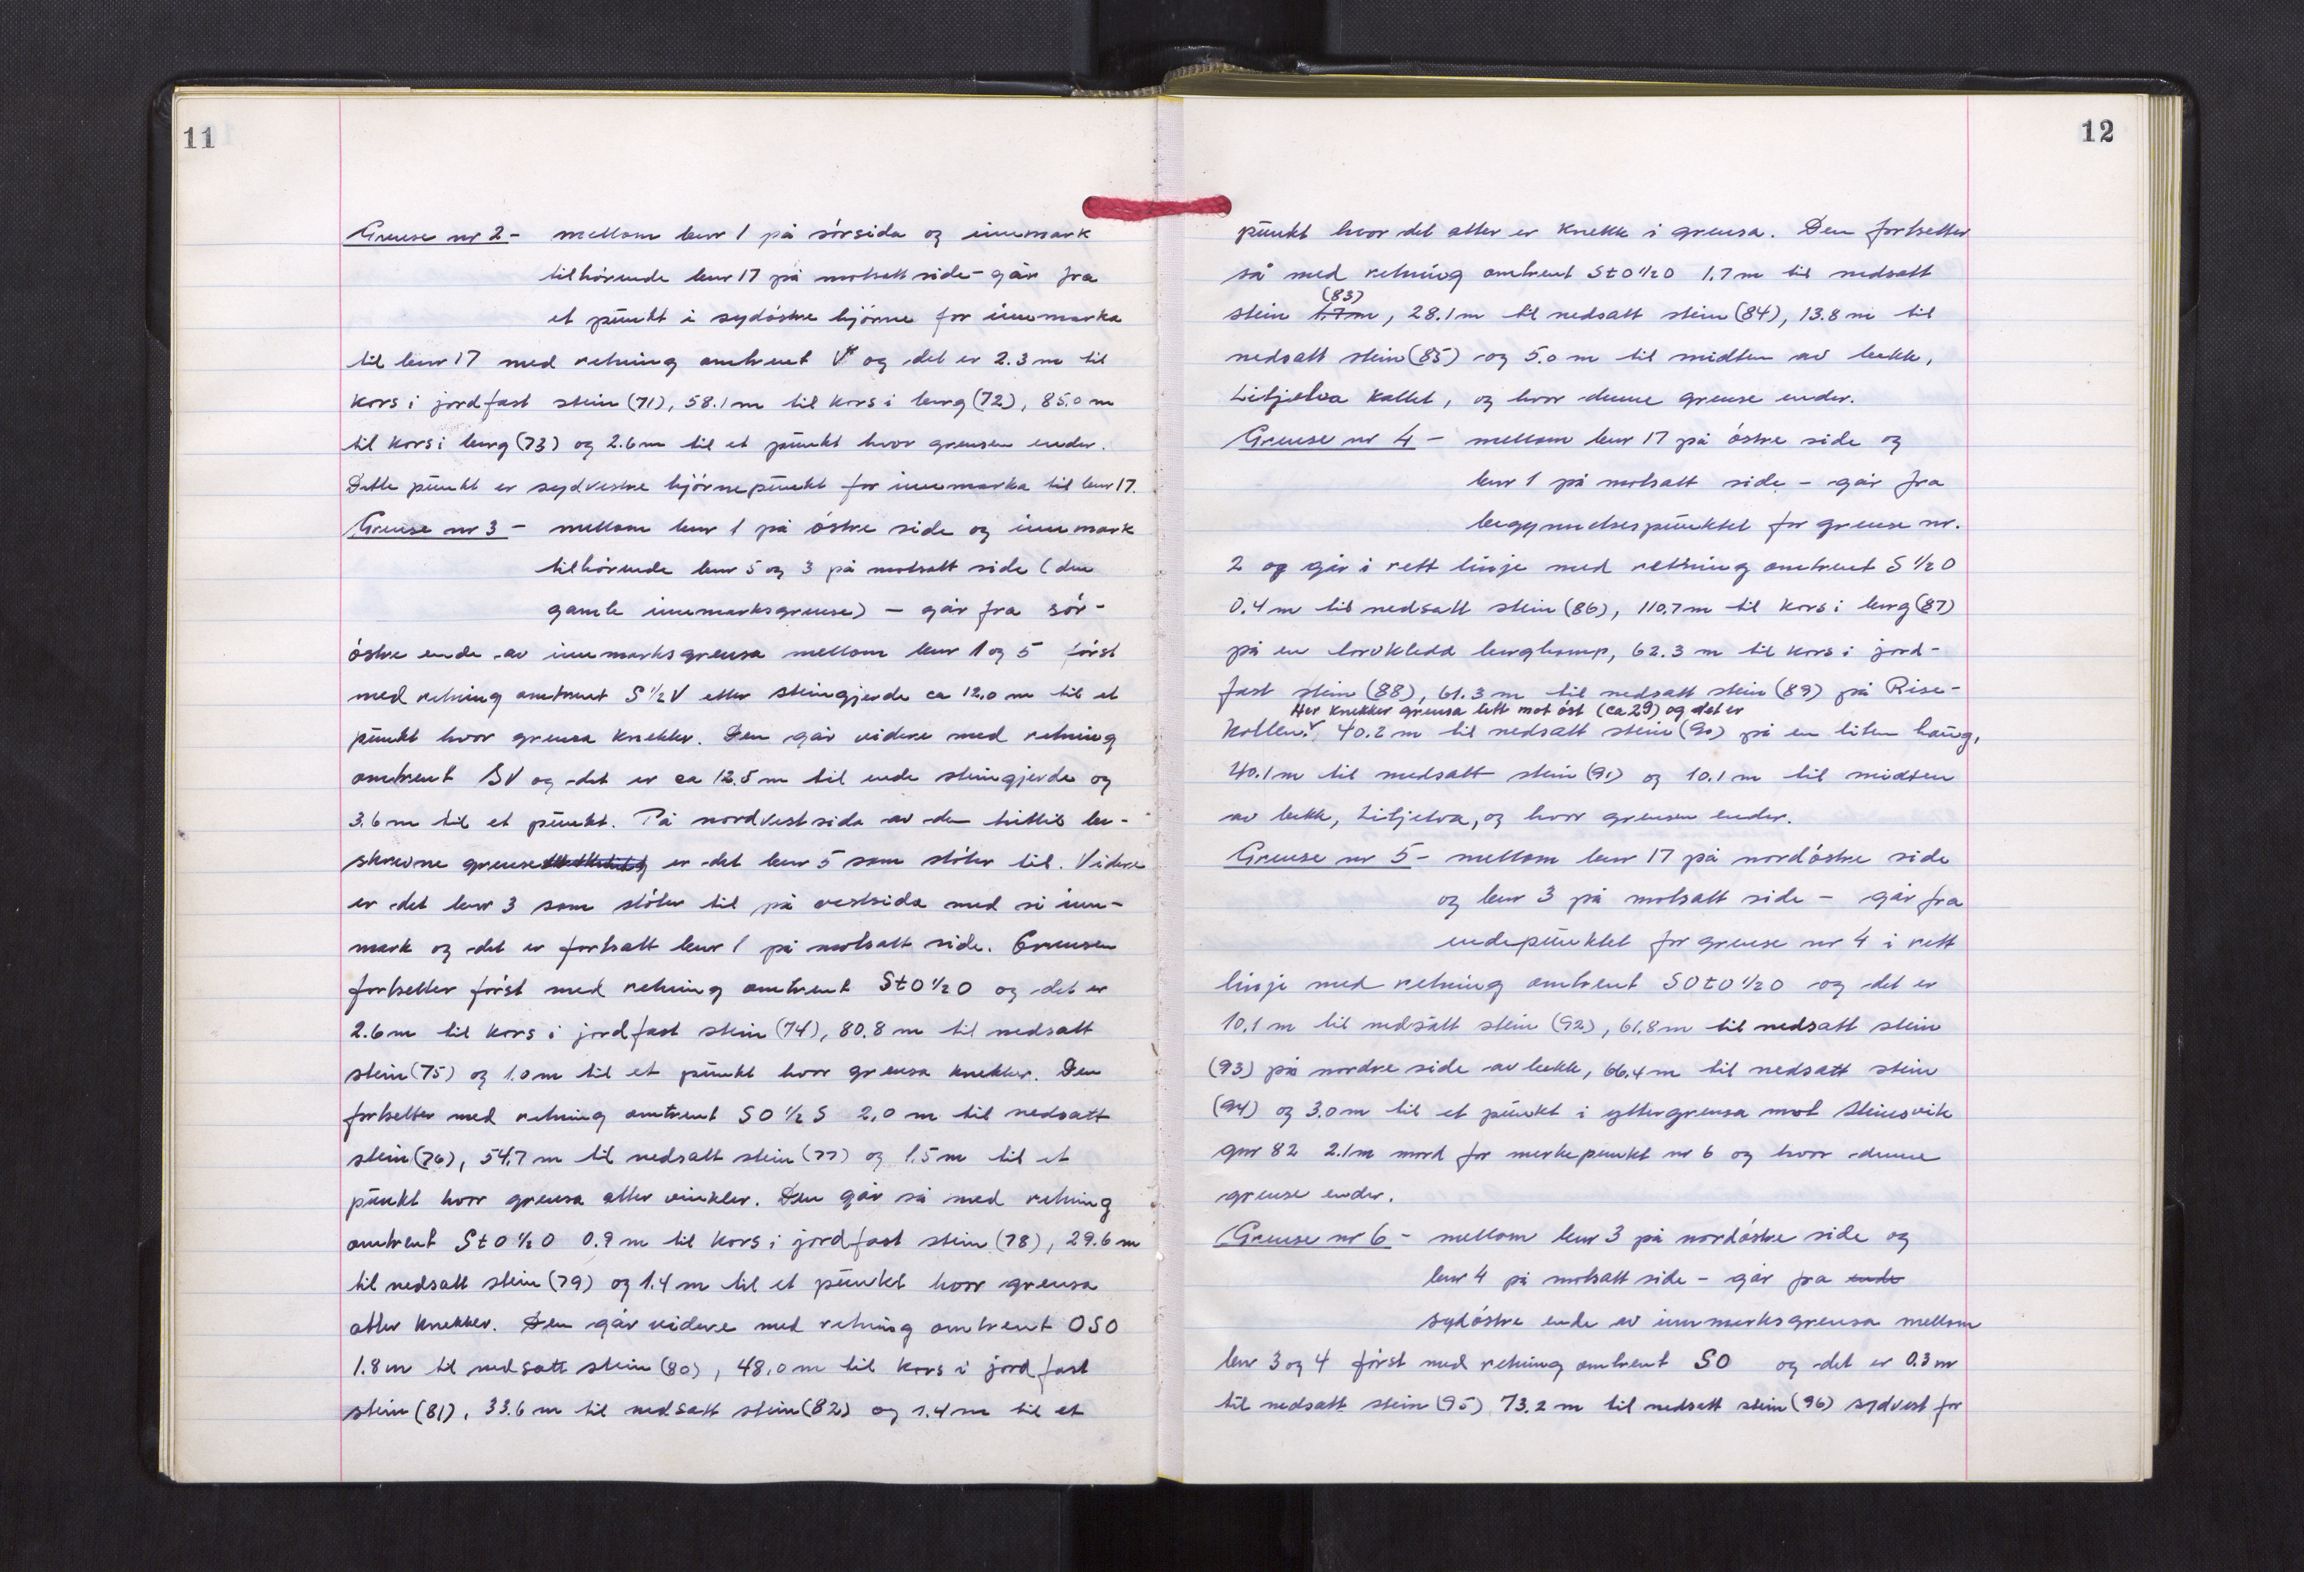 11
Grense nr 2 - mellom bnr 1 på sörsida og innmark
tilhörende bnr 17 på motsatt side - går fra
et punkt i sydöstre hjörne for innmarka
til bnr 17 med retning omtrent V og det er 2.3 m til
kors i jordfast stein (71), 58.1 m til kors i berg (72), 85.0 m
til kors i berg (73) og 2.6 m til et punkt hvor grensen ender.
Dette punkt er sydvestre hjörnepunkt for innmarka til bnr 17.
Grense nr 3 - mellom bnr 1 på östre side og innmark
tilhörende bnr 5 og 3 på motsatt side (den
gamle innmarksgrense) - går fra sör-
östre ende av innmarksgrensa mellom bnr 1 og 5 först
med retning omtrent S 1/2 V etter steingjerde ca 12.0 m til et
punkt hvor grensa knekker. Den går videre med retning
omtrent SV og det er ca 12.5 m til ende steingjerde og
3.6 m til et punkt. På nordvestsida av den hittil be-
skrevne grense er det bnr 5 som stöter til. Videre
er det bnr 3 som stöter til på vestsida med si inn-
mark og det er fortsatt bnr 1 på motsatt side. Grensen
fortsetter först med retning omtrent StO 1/2 O og det er
2.6 m til kors i jordfast stein (74), 80.8 m til nedsatt
stein (75) og 1.0 m til et punkt hvor grensa knekker. Den
fortsetter med retning omtrent SO 1/2 S 2.0 m til nedsatt
stein (76), 54.7 m til nedsatt stein (77) og 1.5 m til et
punkt hvor grensa atter vinkler. Den går så med retning
omtrent StO 1/2 O 0.9 m til kors i jordfast stein (78), 29.6 m
til nedsatt stein (79) og 1.4 m til et punkt hvor grensa
atter knekker. Den går videre med retning omtrent OSO
1.8 m til nedsatt stein (80), 48.0 m til kors i jordfast
stein (81), 33.6 m til nedsatt stein (82) og 1.4 m til et
12
punkt hvor det atter er knekk i grensa. Den fortsetter
så med retning omtrent StO 1/2 O 1.7 m til nedsatt
(83)
stein 1.7 m, 28.1 m til nedsatt stein (84), 13.8 m til
nedsatt stein (85) og 5.0 m til midten av bekk,
Litjelva kallet, og hvor denne grense ender.
Grense nr 4 - mellom bnr 17 på östre side og
bnr 1 på motsatt side - går fra
begynnelsespunktet for grense nr.
2 og går i rett linje med retning omtrent S 1/2 O
0.4 m til nedsatt stein (86), 110.7 m til kors i berg (87)
på en torvkledd berghamp, 62.3 m til kors i jord-
fast stein (88), 61.3 m til nedsatt stein (89) på Rise-
Her knekker grensa lett mot öst (ca 29) og det er
kollen. 40.2 m til nedsatt stein (90) på en liten haug,
40.1 m til nedsatt stein (91) og 10.1 m til midten
av bekk, Litjelva, og hvor grensen ender.
Grense nr 5 - mellom bnr 17 på nordöstre side
og bnr 3 på motsatt side - går fra
endepunktet for grense nr 4 i rett
linje med retning omtrent SOtO 1/2 O og det er
10.1 m til nedsatt stein (92), 61.8 m til nedsatt stein
(93) på nordre side av bekk, 66.4 m til nedsatt stein
(94) og 3.0 m til et punkt i yttergrensa mot Steinsvik
gnr 82 2.1 m nord for merkepunkt nr 6 og hvor denne
grense ender.
Grense nr 6 - mellom bnr 3 på nordöstre side og
bnr 4 på motsatt side - går fra ende
sydöstre ende av innmarksgrensa mellom
bnr 3 og 4 först med retning omtrent SO og det er 0.3 m
til nedsatt stein (95) 73.2 m til nedsatt stein (96) sydvest for